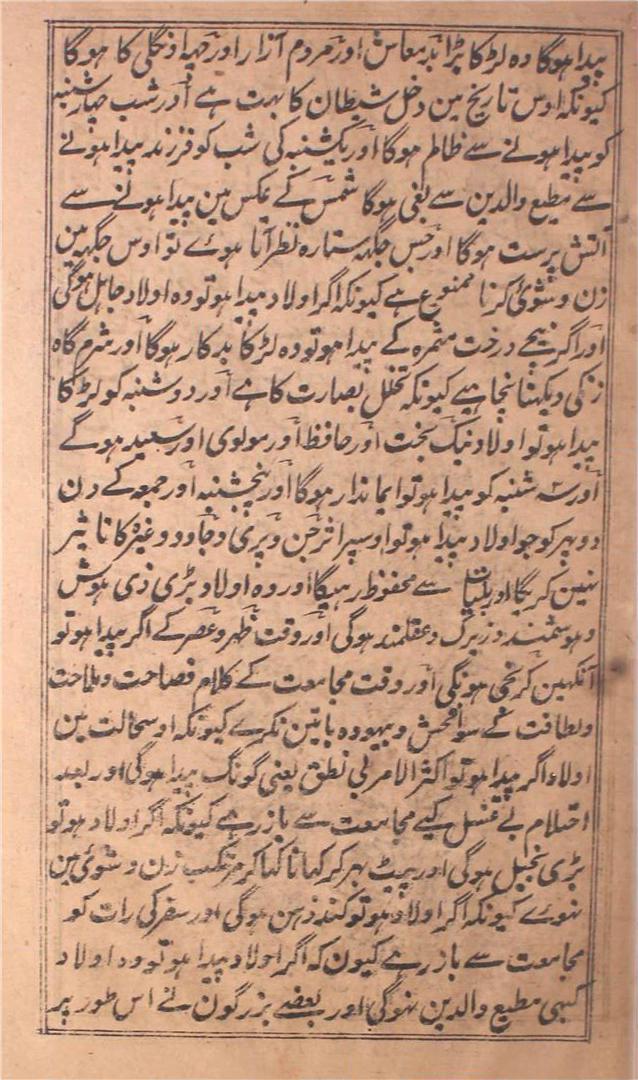 پیدا ہوگا وہ لڑکا بڑا بدمعاش اور مردم آزار اور جہدا ونگلی کا ہوگا
کیونکہ اوس تاریخ مین دخل شیطان کا بہت ہے اور شب چہار شنبہ
کو پیدا ہونے سے ظالم ہوگا اور یکشنبہ کی شب کو فرزند پیدا ہونے
سے مطیع والدین سے بغی ہوگا شمس کے عکس مین پیدا ہونے سے
آتش پرست ہوگا اور جس جگہہ ستارہ نظر آتا ہوے تو اوس جگہہ مین
زن و شوئی کرنا ممنوع ہے کیونکہ اگر اولاد پیدا ہو تو وہ اولاد جاہل ہوگی
اور اگر نیچے درخت مثمرہ کے پیدا ہو تو وہ لڑکا بدکار ہوگا اور شرم گاہ
زنکی دیکہنا نچاہیے کیونکہ مخل بصارت کا ہے اور دوشنبہ کو لڑکا
پیدا ہو تو اولاد نیک بخت اور حافظ اور مولوی اور سعید ہوگے
اور سہ شنبہ کو پیدا ہو تو ایماندار ہوگا اور پنچشنبہ اور جمعہ کے دن
دوپہر کو جو اولاد پیدا ہو تو اوسپر اثر جن و پری و جادو وغیرہ کا تاثیر
نہین کریگا اور بلیات سے محفوظ رہیگا اور وہ اولاد بڑی ذی ہوش
و ہوشمند و زیرک و عقلمند ہوگی اور وقت ظہر و عصر کے اگر پیدا ہو تو
آنکہین کرنجی ہونگی اور وقت مجامعت کے کلام فصاحت و ملاحت
و لطافت کے سوا فحش و بیہودہ باتین نکرے کیونکہ اوسحالت مین
اولاد اگر پیدا ہو تو اکثر الامر بی نطق یعنی گونگ پیدا ہوگی اور بعد
احتلام بے غسل کیے مجامعت سے باز رہے کیونکہ اگر اولاد ہو تو
بڑی بخیل ہوگی اور پیٹ بہر کر کہانا کہا کر مرتکب زن و شوئی مین
نہوے کیونکہ اگر اولاد ہو تو کند ذہن ہوگی اور سفر کی رات کو
مجامعت سے باز رہے کیون کہ اگر اولاد پیدا ہو تو وہ اولاد
کبہی مطیع والدین نہوگی اور بعضے بزرگون نے اس طور پر